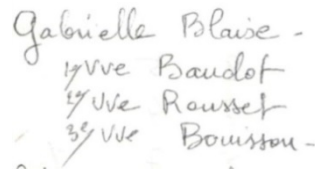 Gabrielle Blaise -
1º/ Vve Baudot
2º/ Vve Rousset
3º/ Vve Bouisson -